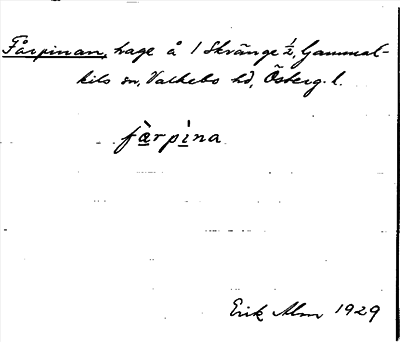 Fårpinan, hage å 1 Skränge ½, Gammal-
kils sn, Valkebo hd, Österg. l.
fàrpìna
Erik Alm 1929